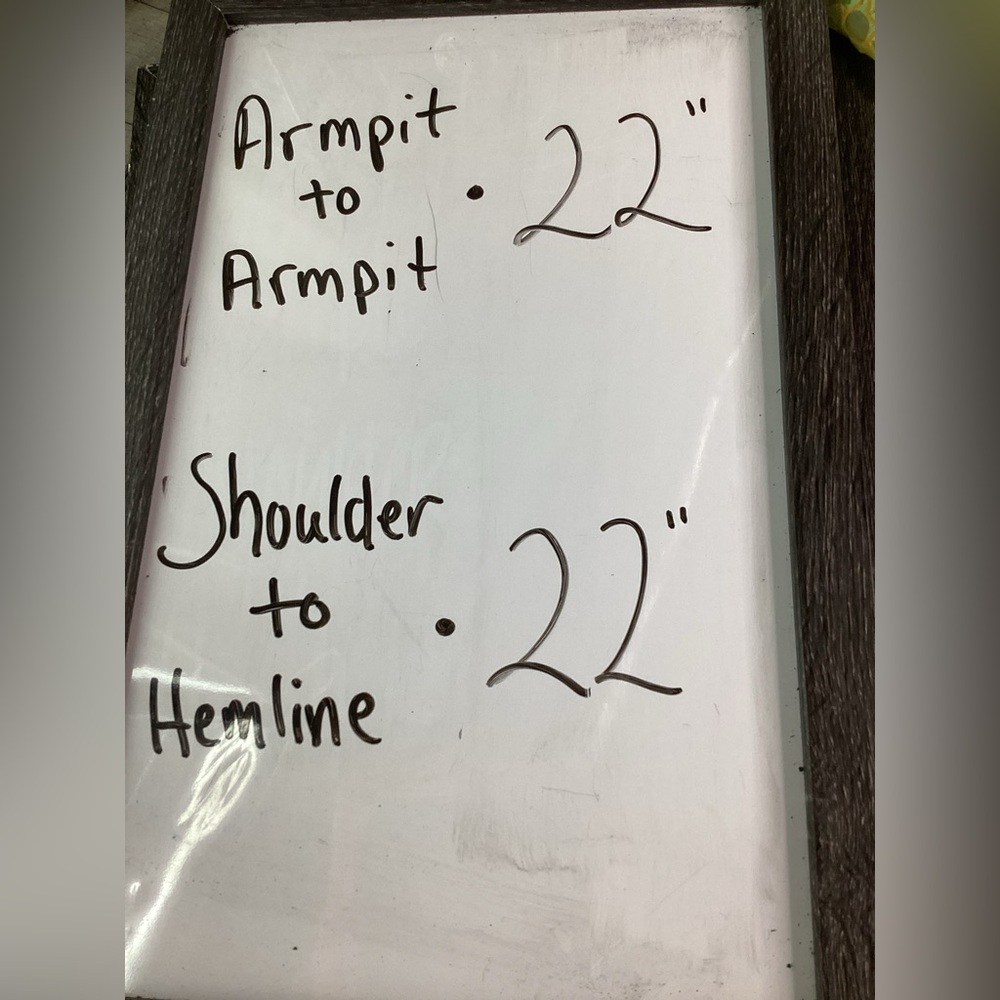 Armpit
to · 22"
Armpit
Shoulder
to · 22"
Hemline